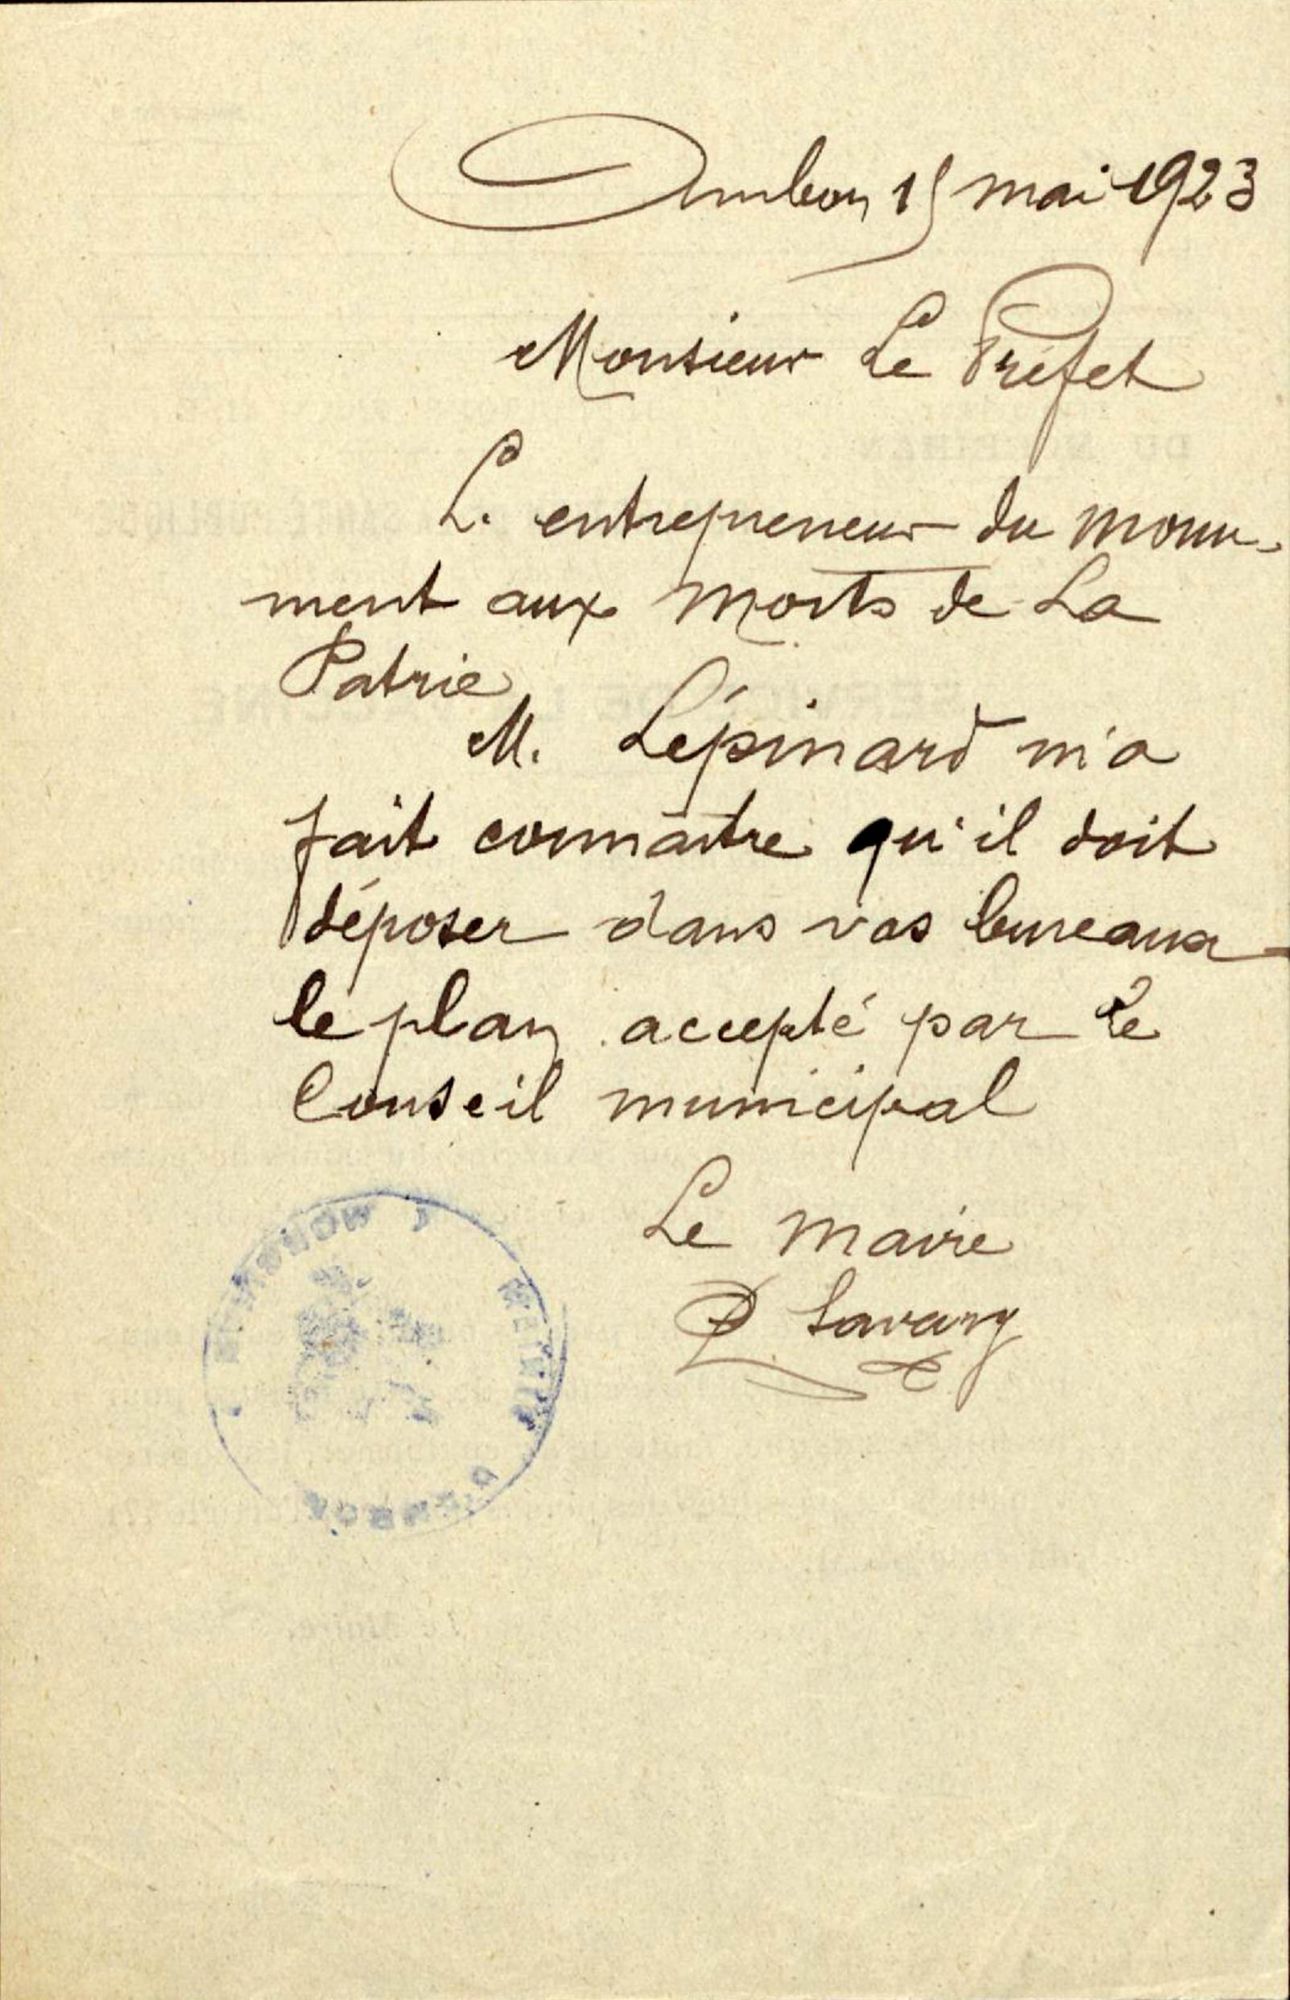 Ambon 15 mai 1923
Monsieur Le Préfet
L. entrepreneur du monu-
ment aux Morts de La
Patrie
M. Lépinard m'a
fait connaitre qu'il doit
déposer dans vos bureaux
le plan accepté par Le
Conseil municipal
Le Maire
Savary
MAIRIE D'AMBON
(MORBIHAN)